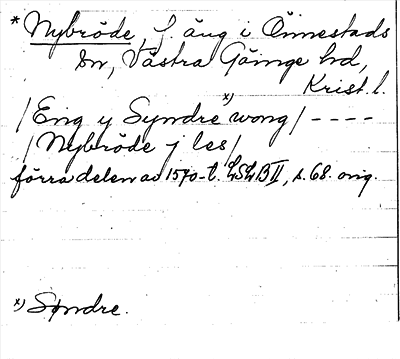 * Nybröde, f. äng i Önnestads
sn, Västra Göinge hd,
Krist. l.
/Eng y Syndre x) wong/ ----
/Nybröde j les/
förra delen av 1570-t. LSLB II, s. 68. orig.
x) Søndre.